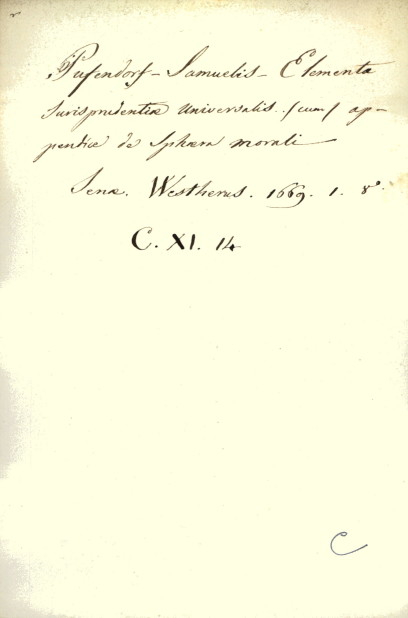 Pufendorf - Samuelis - Elementa
Jurisprudentiæ Universalis. (cum) ap-
pendice de Sphæra morali
Jenæ. Westherus. 1669. 1. 8°.
C. XI. 14
C